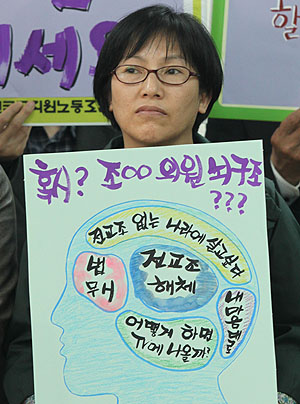 세요
교직원노동조
할
혹시? 조○○ 의원 뇌구조
???
전교조 없는 나라에 살고싶다
법
무시
전교조
해체
내맘대로
어떻게 하면
TV에 나올까?